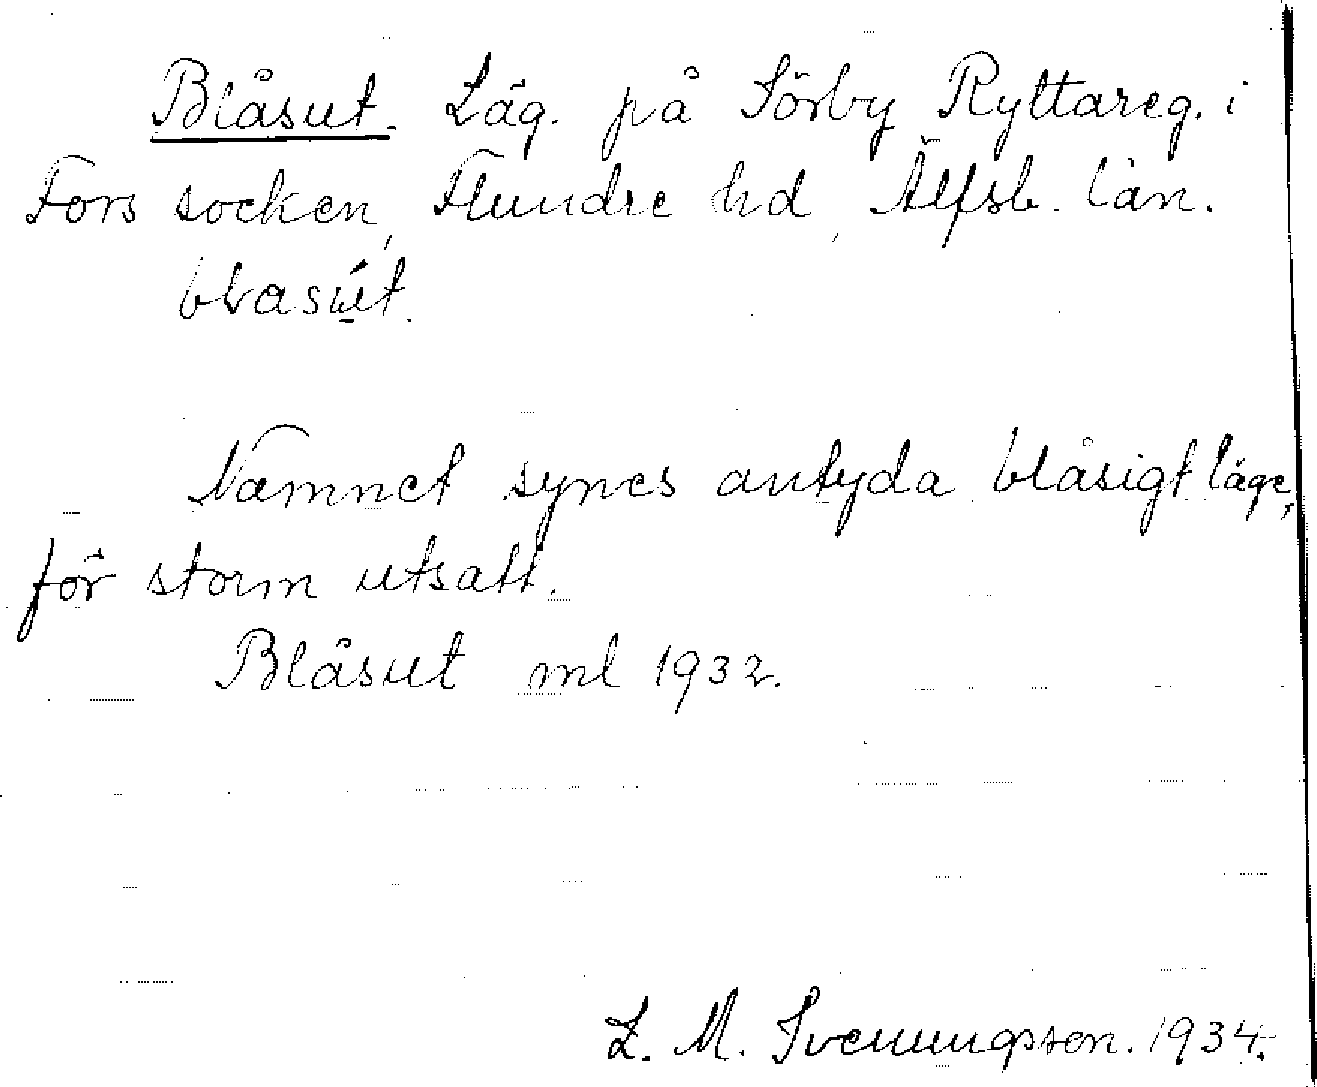 Blåsut. Läg. på Sörby Ryttareg. i
Fors socken, Flundre hd, Älfsb. län.
blasút.
Namnet synes antyda blåsigt läge,
för storm utsatt.
Blåsut ml 1932.
L. M. Svenungsson. 1934.